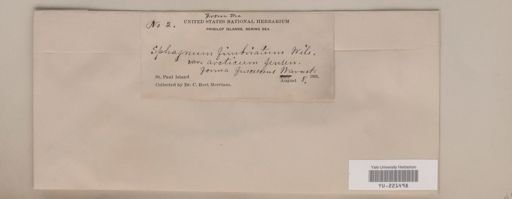 From the
No 2. UNITED STATES NATIONAL HERBARIUM
PRIBILOF ISLANDS, BERING SEA
Sphagnum fimbriatum Wils.
var. arcticum Jensen.
forma fuscescens Warnst.
St. Paul Island August 8,
Collected by Dr. C. Hart Merriam.
Yale University Herbarium
YU-225498